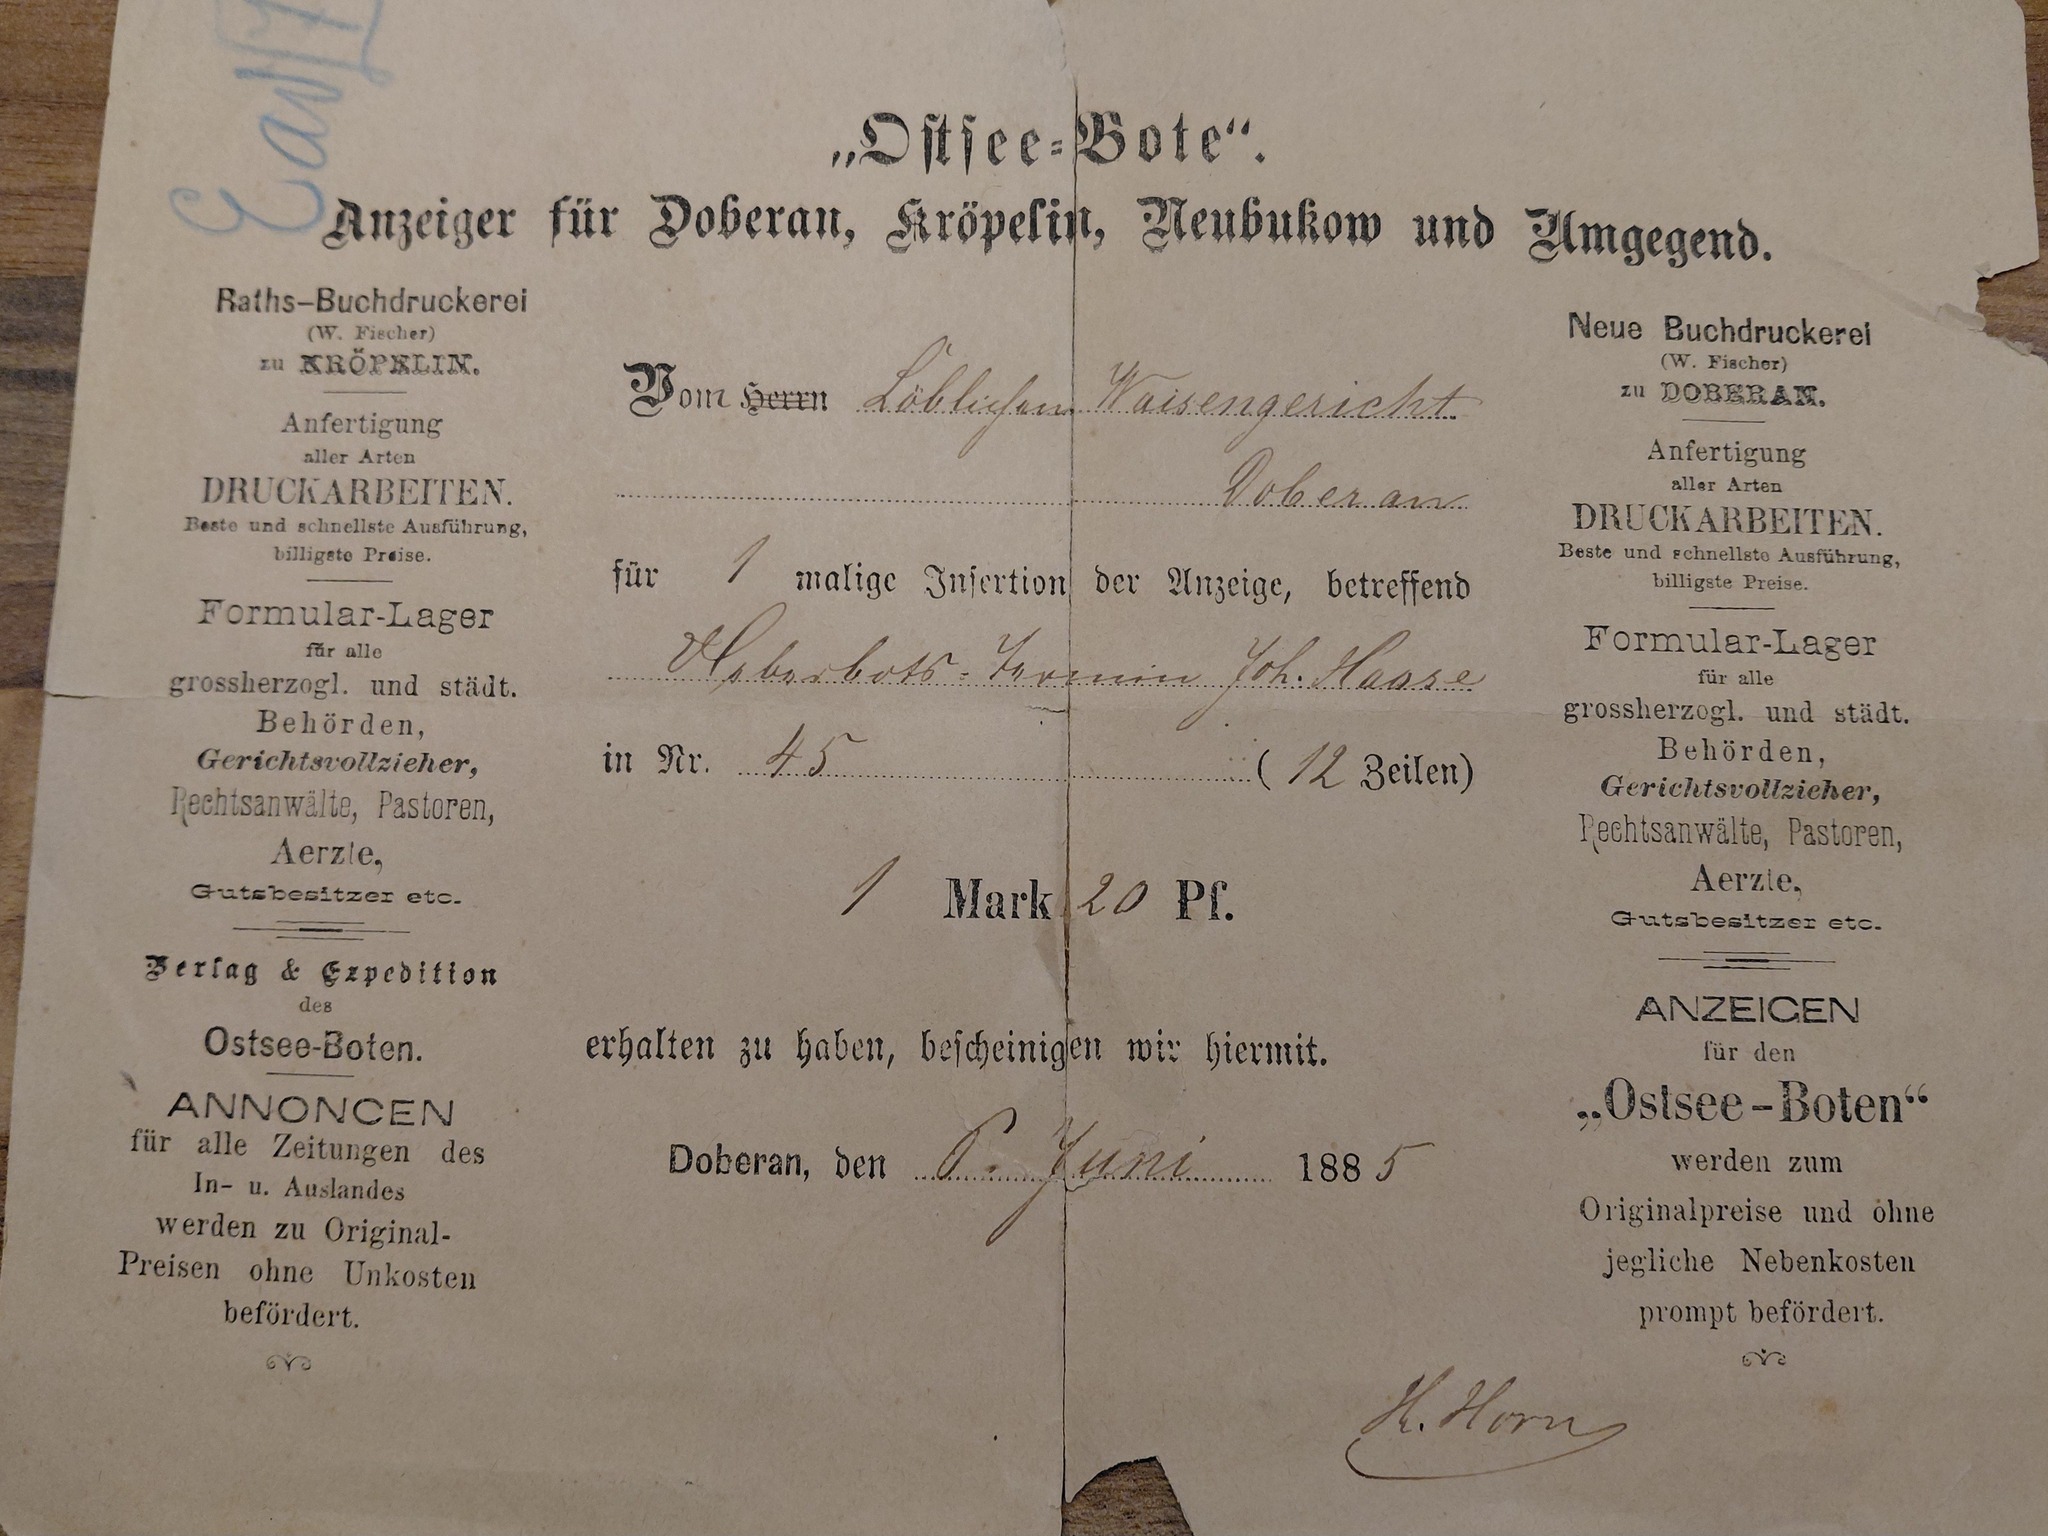 „Ostsee-Bote“.
Anzeiger für Doberan, Kröpelin, Neubukow und Umgegend.
Raths-Buchdruckerei
(W. Fischer)
zu KRÖPELIN.
Anfertigung
aller Arten
DRUCKARBEITEN.
Beste und schnellste Ausführung,
billigste Preise.
Formular-Lager
für alle
grossherzogl. und städt.
Behörden,
Gerichtsvollzieher,
Rechtsanwälte, Pastoren,
Aerzte,
Gutsbesitzer etc.
Verlag & Expedition
des
Ostsee-Boten.
ANNONCEN
für alle Zeitungen des
In- u. Auslandes
werden zu Original-
Preisen ohne Unkosten
befördert.
Vom Herrn Löblichen Waisengericht
Doberan
für 1 malige Insertion der Anzeige, betreffend
Ueberbots-Termin Joh. Haase
in Nr. 45 (12 Zeilen)
1 Mark 20 Pf.
erhalten zu haben, bescheinigen wir hiermit.
Doberan, den Juni 1885
H. Horn
Neue Buchdruckerei
(W. Fischer)
zu DOBERAN.
Anfertigung
aller Arten
DRUCKARBEITEN.
Beste und schnellste Ausführung,
billigste Preise.
Formular-Lager
für alle
grossherzogl. und städt.
Behörden,
Gerichtsvollzieher,
Rechtsanwälte, Pastoren,
Aerzte,
Gutsbesitzer etc.
ANZEIGEN
für den
„Ostsee-Boten“
werden zum
Originalpreise und ohne
jegliche Nebenkosten
prompt befördert.